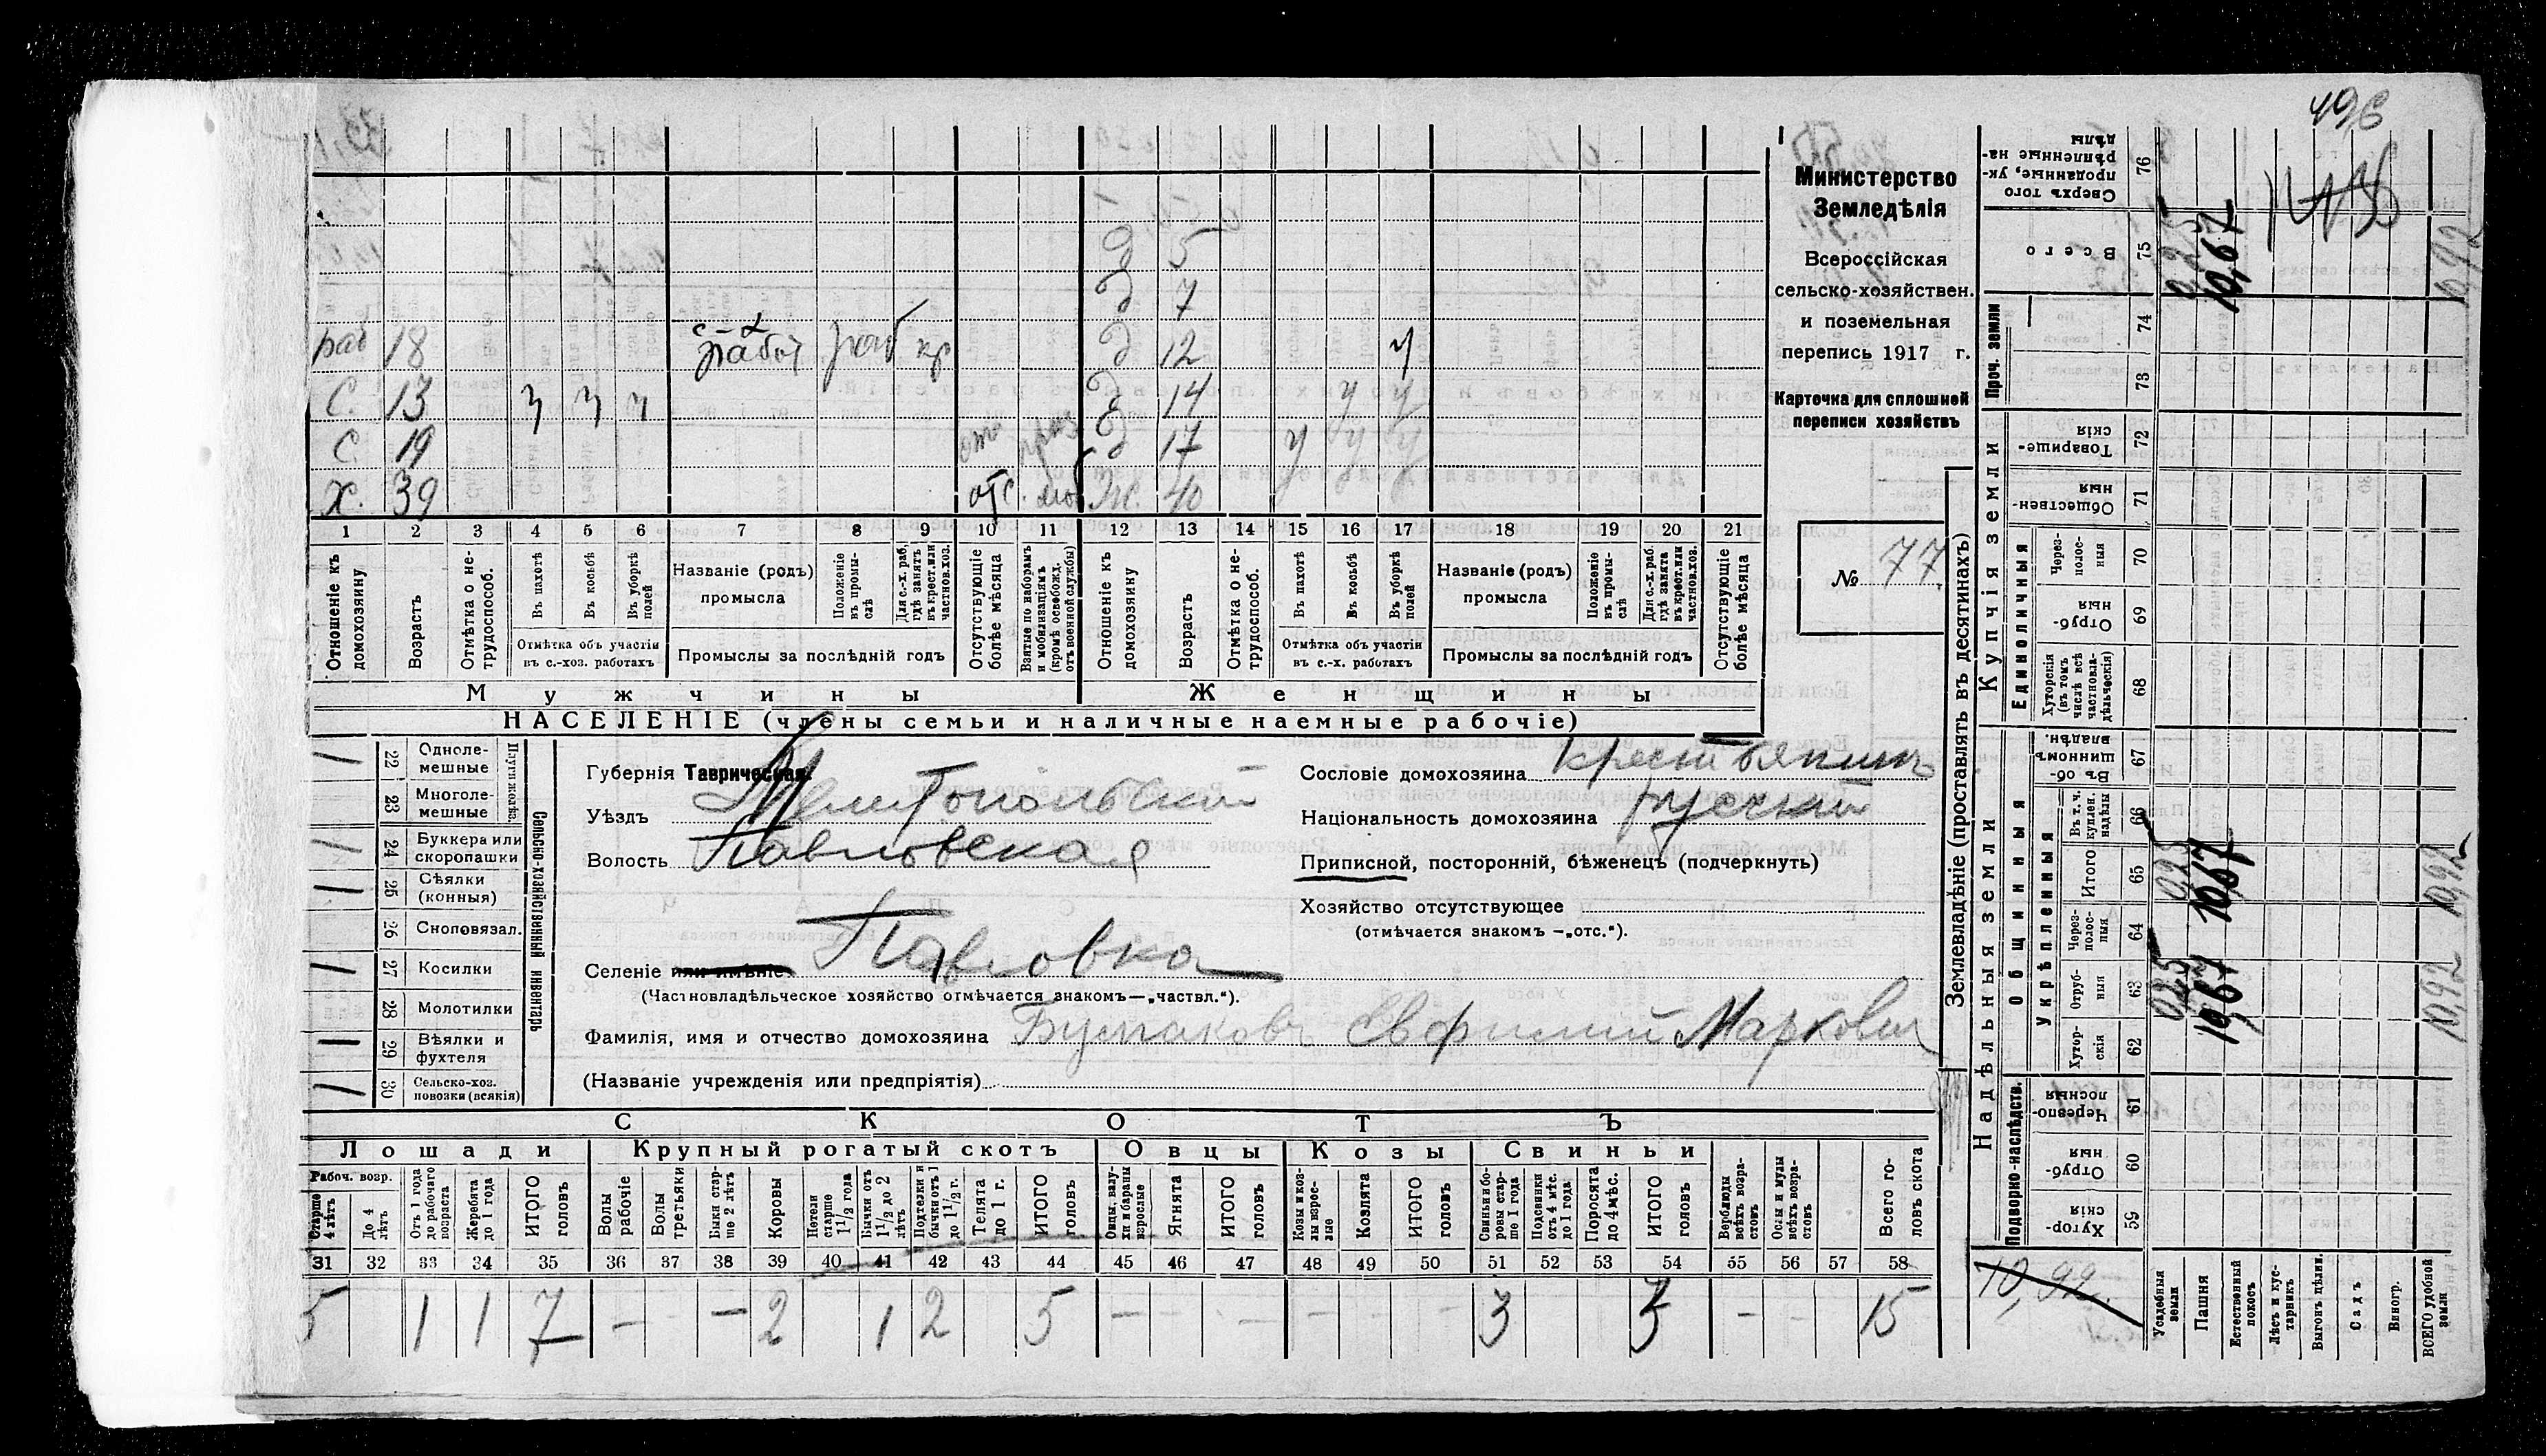 496
Министерство
Земледѣлія
Всероссійская
сельско-хозяйствен.
и поземельная
перепись 1917 г.
Карточка для сплошной
переписи хозяйствъ
№ 77
Д 5
Д 7
раб 18 с-х работ раб кр Д 12 ч
С. 13 ч ч ч Д 14 ч ч
С. 19 отс. Д 17 ч ч ч
Х. 39 отс. моб Ж. 40
1 2 3 4 5 6 7 8 9 10 11 12 13 14 15 16 17 18 19 20 21
Отношеніе къ домохозяину
Возрастъ
Отмѣтка о не-трудоспособ.
Въ пахотѣ
Въ косьбѣ
Въ уборкѣ полей
Отмѣтка объ участіи въ с.-хоз. работахъ
Названіе (родъ) промысла
Положеніе въ промы-слѣ
Для с.-х. раб. гдѣ занятъ въ крест. или частновл. хоз.
Промыслы за послѣдній годъ
Отсутствующіе болѣе мѣсяца
Взятые по наборамъ и мобилизаціямъ (кромѣ освобожд. отъ военной службы)
Отношеніе къ домохозяину
Возрастъ
Отмѣтка о не-трудоспособ.
Въ пахотѣ
Въ косьбѣ
Въ уборкѣ полей
Отмѣтка объ участіи въ с.-х. работахъ
Названіе (родъ) промысла
Положеніе въ промы-слѣ
Для с.-х. раб. гдѣ занята въ крест. или частнов. хоз.
Промыслы за послѣдній годъ
Отсутствующіе болѣе мѣсяца
Мужчины Женщины
НАСЕЛЕНІЕ (члены семьи и наличные наемные рабочіе)
Сельско-хозяйственный инвентарь
Плуги желѣз.
22 Одноле-мешные 1
23 Многоле-мешные
24 Буккера или скоропашки 1
25 Сѣялки (конныя) 1
26 Сноповязал.
27 Косилки 1
28 Молотилки
29 Вѣялки и фухтеля 1
30 Сельско-хоз. повозки (всякія) 1
Губернія Таврическая.
Уѣздъ Мелитопольскій
Волость Павловская
Селеніе или имѣніе Павловка
(Частновладѣльческое хозяйство отмѣчается знакомъ—„частвл.“).
Фамилія, имя и отчество домохозяина Бумаковъ Евфимій Марковичъ
(Названіе учрежденія или предпріятія)
Сословіе домохозяина крестьянинъ
Національность домохозяина русскій
Приписной, посторонній, бѣженецъ (подчеркнуть)
Хозяйство отсутствующее
(отмѣчается знакомъ —„отс.“).
СКОТЪ
Лошади Крупный рогатый скотъ Овцы Козы Свиньи
Рабоч. возр.
Старше 4 лѣтъ
До 4 лѣтъ
Отъ 1 года до рабочаго возраста
Жеребята до 1 года
ИТОГО головъ
Волы рабочіе
Волы третьяки
Быки стар-ше 2 лѣтъ
Коровы
Нетели старше 1 1/2 года
Бычки отъ 1 1/2 до 2 лѣтъ
Подтелки и бычки отъ 1 до 1 1/2 г.
Телята до 1 г.
ИТОГО головъ
Овцы, валу-хи и бараны взрослые
Ягнята
ИТОГО головъ
Козы и коз-лы взрос-лые
Козлята
ИТОГО головъ
Свиньи и бо-ровы стар-ше 1 года
Подсвинки отъ 4 мѣс. до 1 года
Поросята до 4 мѣс.
ИТОГО головъ
Верблюды всѣхъ возра-стовъ
Ослы и мулы всѣхъ возра-стовъ
Всего го-ловъ скота
31 32 33 34 35 36 37 38 39 40 41 42 43 44 45 46 47 48 49 50 51 52 53 54 55 56 57 58
5 1 1 7 – – 2 1 2 5 – – – – – 3 3 – 15
Землевладѣніе (проставлять въ десятинахъ)
Купчія земли
Проч. земли
Единоличныя
Надѣльныя земли
Общинныя
Укрѣпленныя
Подворно-наслѣдств.
Сверхъ того проданные, ук-рѣпленные на-дѣлы 76
Всего 75 0,25 10,67 10,92
74
73
Товарище-скія 72
Обществен-ныя 71
Через-полос-ныя 70
Отруб-ныя 69
Хуторскія (въ томъ числѣ всѣ частновла-дѣльческія) 68
Въ об-щинномъ владѣн. 67
Въ т. ч. куплен. надѣлы 66
Итого 65 0,25 10,67 10,92
Через-полос-ныя 64
Отруб-ныя 63 0,25 10,67 10,92
Хутор-скія 62
Черезпо-лосныя 61
Отруб-ныя 60
Хутор-скія 59
10,92.
Усадебныя земли
Пашня
Естественный покосъ
Лѣсъ и кус-тарникъ
Выгонъ цѣлин.
Садъ
Виногр.
ВСЕГО удобной земли